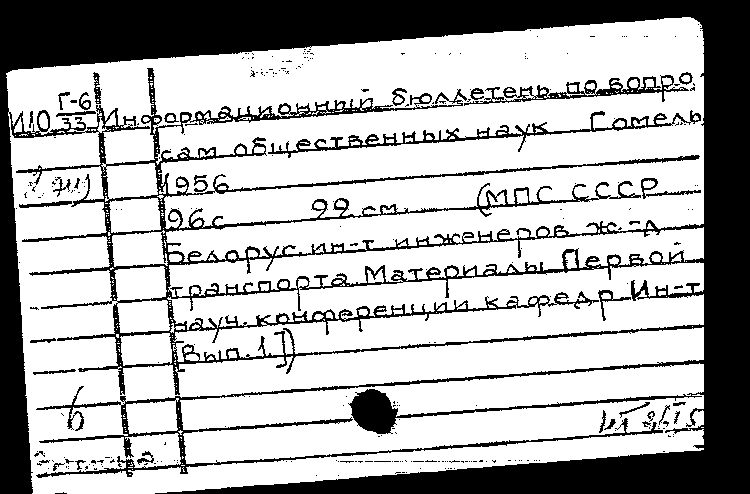 И10 Г-6/33 Информационный бюллетень по вопро-
сам общественных наук Гомель
1956
96с 22 см. (МПС СССР
Белорус. ин-т инженеров ж.-д
транспорта. Материалы Первой
науч. конференции кафедр Ин-т
[Вып. 1.])
б